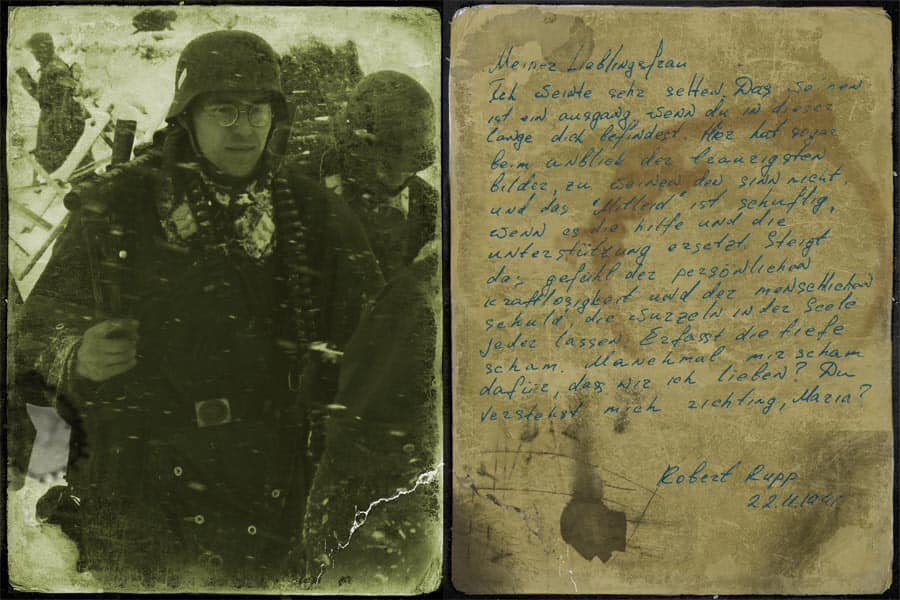 Meiner Lieblingsfrau
Ich weinte sehr selten. Das weinen
ist ein ausgang, wenn du in dieser
lange dich befindest. Hör hat sogar
beim anblick der traurigsten
bilder, zu weinen den sinn nicht.
und das "Mitleid" ist schuftig,
wenn es die hilfe und die
unterstützung ersetzt. Steigt
das gefühl der persönlichen
kraftlosigkeit und der menschlichen
schuld, die wurzeln in der seele
jeder lassen. Erfasst die tiefe
scham. Manchmal mir scham
dafür, dass wir ich lieben? Du
verstehst mich richting, Maria?
Robert Rupp